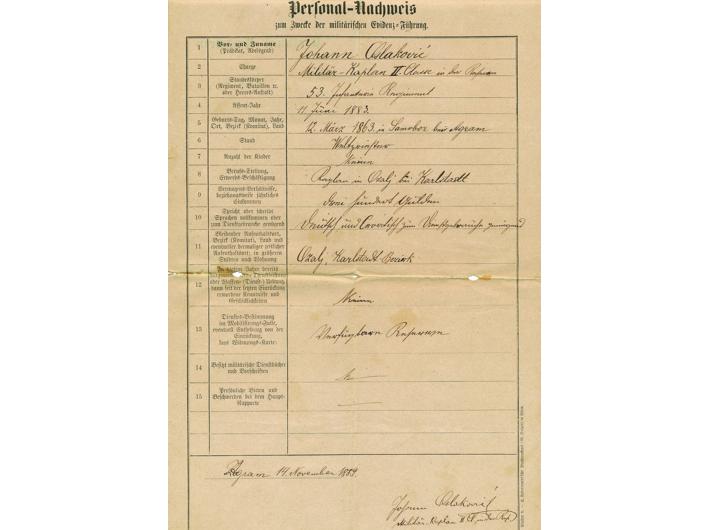 Personal-Nachweis
zum Zwecke der militärischen Evidenz-Führung.
1 Vor- und Zuname
(Prädikat, Adelsgrad)
Johann Oslaković
2 Charge
Militär-Kaplan II. Classe in der Reserve
3 Standeskörper
(Regiment, Bataillon u.
oder Heeres-Anstalt)
53. Infanterie Regiment
4 Assent-Jahr
11. Juni 1883.
5 Geburts-Tag, Monat, Jahr,
Ort, Bezirk (Komitat), Land
12. März 1863 in Samobor bei Agram
6 Stand
Weltpriester
7 Anzahl der Kinder
Keine
8 Berufs-Stellung,
Erwerbs-Beschäftigung
Kaplan in Ozalj bei Karlstadt
9 Vermögens-Verhältnisse,
beziehungsweise jährliches
Einkommen
hundert Gulden
10 Spricht oder schreibt
Sprachen vollkommen oder
zum Dienstgebrauche genügend
Deutsch und Croatisch zum Dienstgebrauche genügend
11 Bleibender Aufenthaltsort,
Bezirk (Komitat), Land und
eventueller dermaliger zeitlicher
Aufenthaltsort; in größeren
Städten auch Wohnung
Ozalj, Karlstadt Bezirk
12
oder Waffen- (Dienst-) Leistung,
dann seit der letzten Einrückung
erworbene Kenntnisse und
Geschicklichkeiten
Keine
13 Dienstes-Bestimmung
im Mobilisierungs-Falle,
eventuell Enthebung von der
Einrückung,
laut Widmungs-Karte:
Verfügbare Reserve
14 Besitzt militärische Dienstbücher
und Vorschriften
15 Persönliche Bitten und
Beschwerden bei dem Haupt-
Rapporte
Agram 14. November 1889.
Johann Oslaković
Militär-Kaplan II Cl. in der Res.